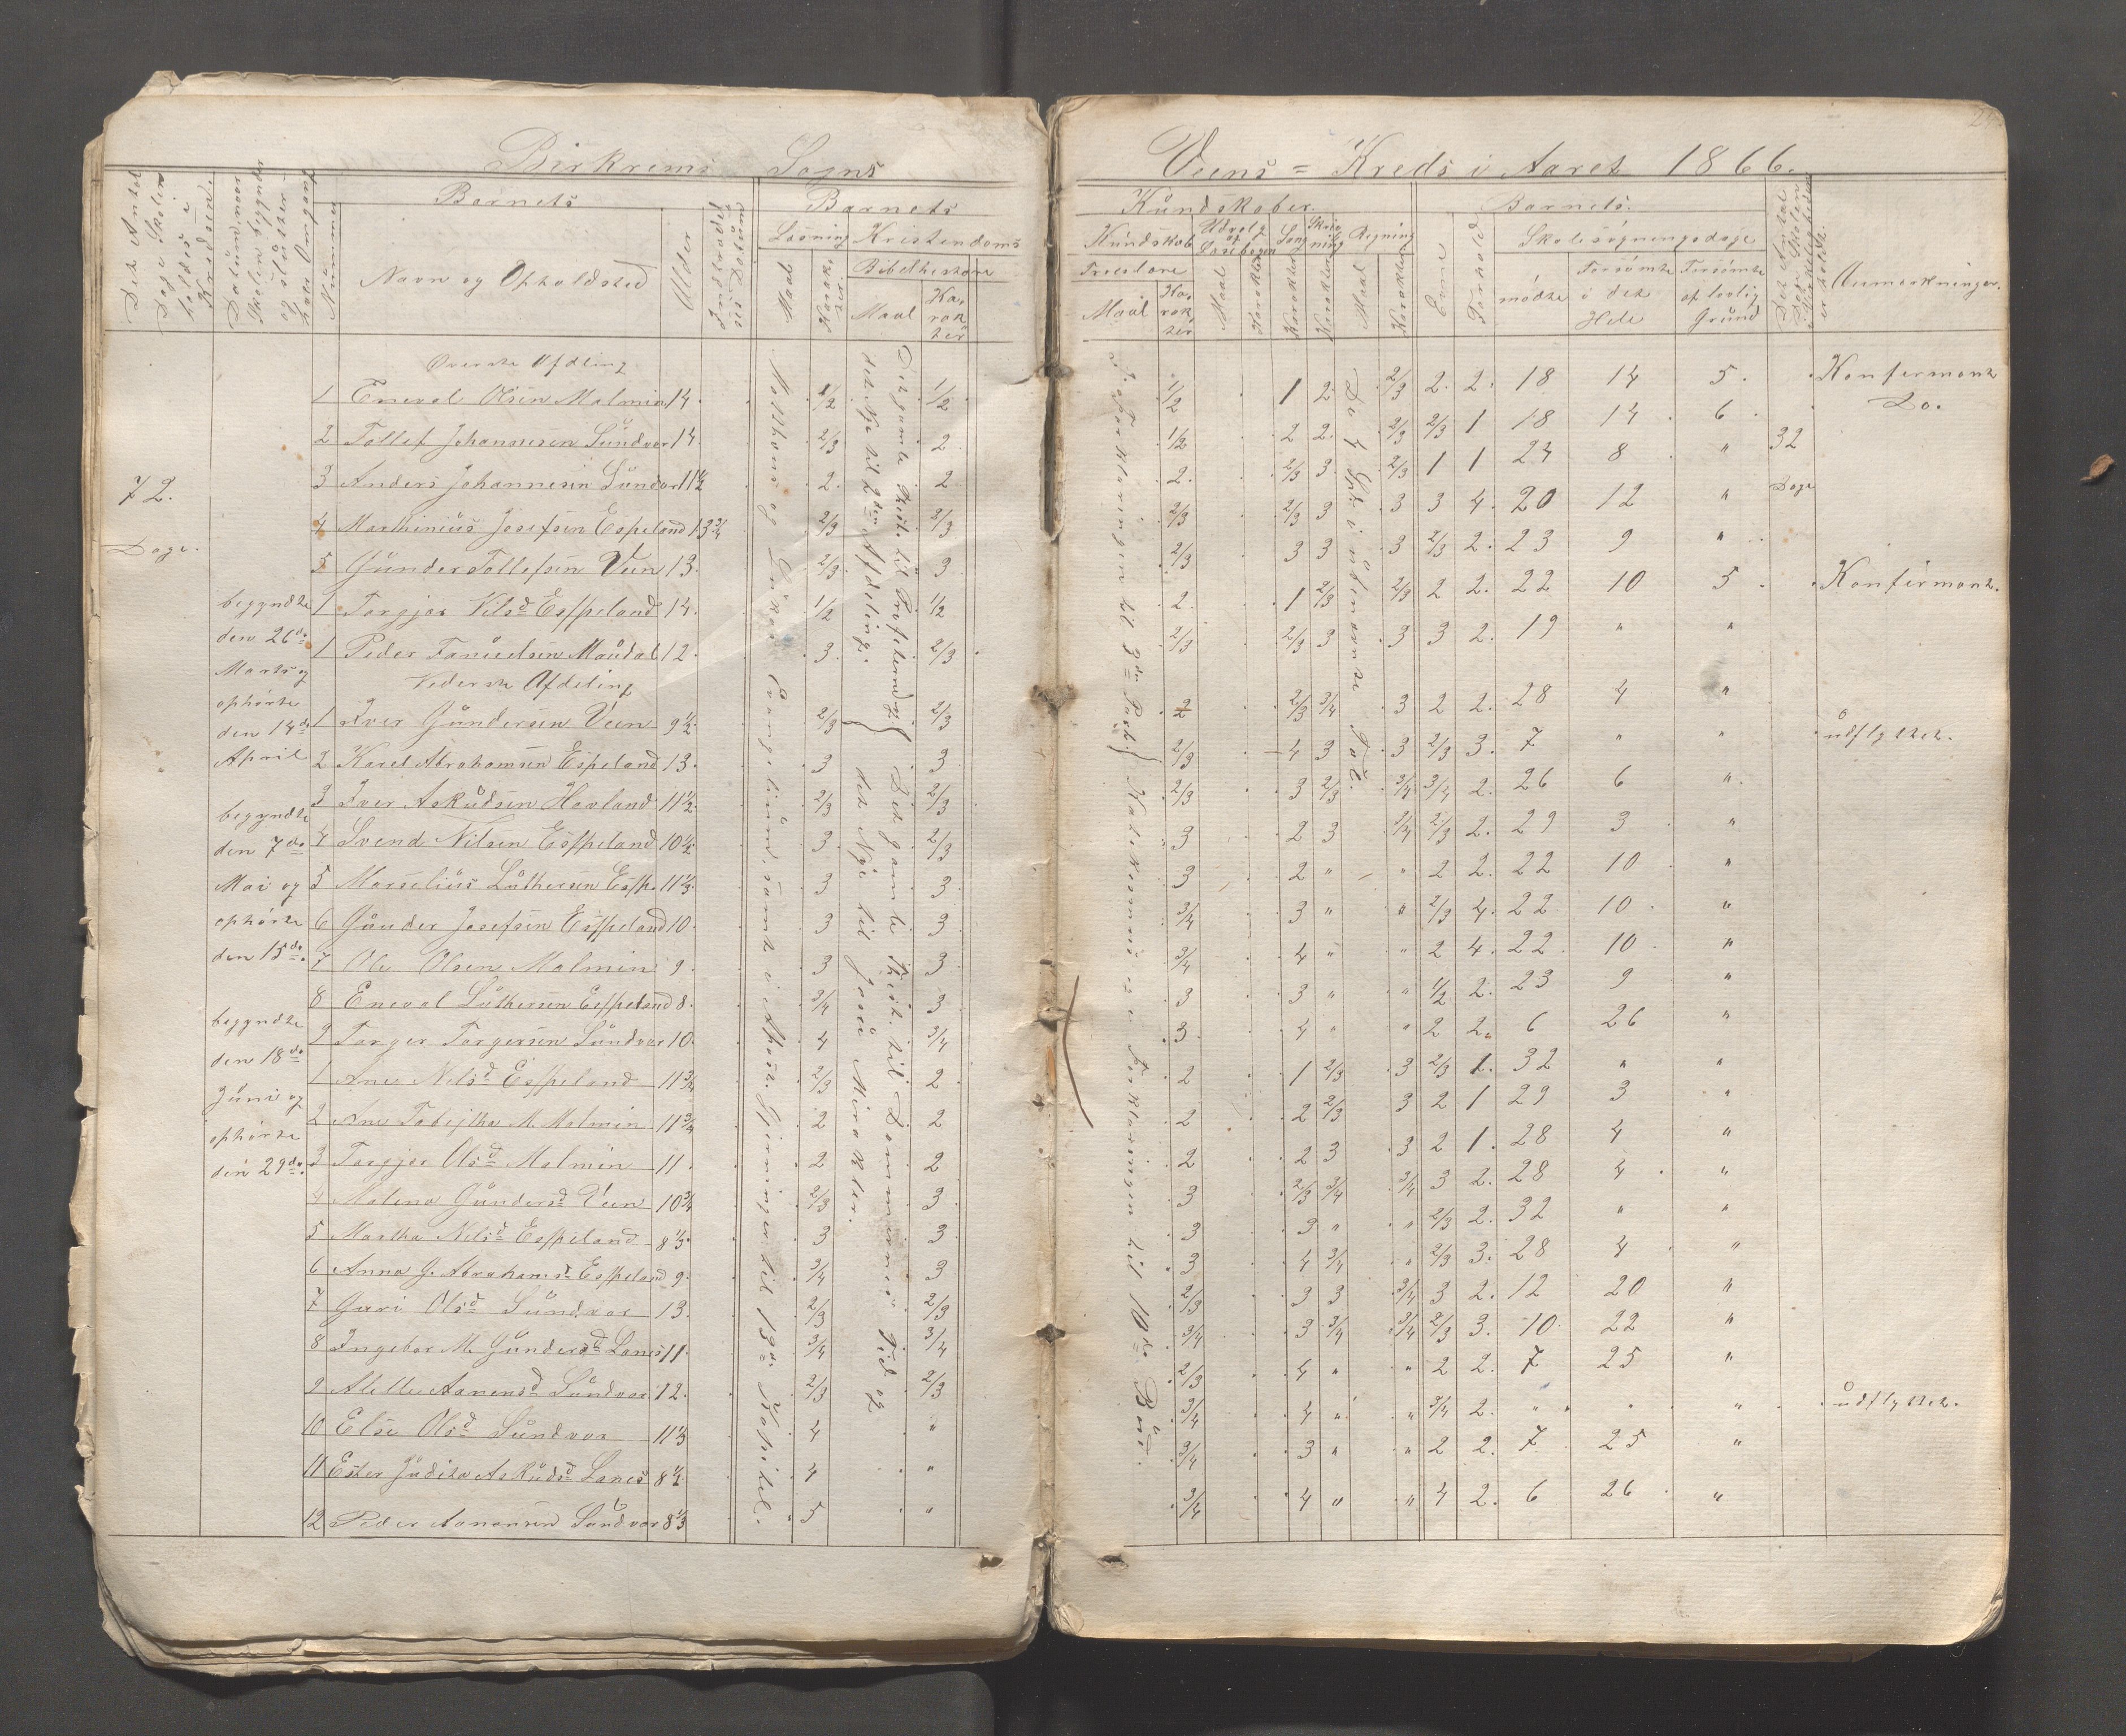 Birkrems Sogns
Det Antal Dage Skolen holdes i Kredsen.
Datum, naar Skolen begynder og slutter hver Omgang
Nummer
Barnets
Navn og Opholdsted
Alder
Indtrædelses Datum
Barnets
Læsning
Kristendoms
Maal
Karakter
Bibelhistorie
Maal
Karakter
72.
Dage.
begyndte
den 26de
Marts og
ophørte
den 14de
April
begyndte
den 7de
Mai og
ophørte
den 15de.
begyndte
den 18de
Juni og
ophørte
den 29de.
Øverste Afdeling
1 Eneval Olsen Malmin 14. 1/2 1/2
2 Tollef Johannesen Sundvor 14. 2/3 2
3 Anders Johannesen Sundvor 11 1/2 2. 2
4 Marthinius Josefsen Espeland 13 3/4 2/3 2/3
5 Gunder Tollefsen Veen 13. 2/3 3
1 Torgjer Nilsd Espeland 14. 1/2 1/2
1 Peder Tanielsen Maudal 12. 3. 2/3
Nederste Afdeling
1 Iver Gundersen Veen 9 1/2 2/3 2/3
2 Karel Abrahamsen Espeland 13. 3 3
3 Iver Askudsen Havland 11 1/2 2/3 2/3
4 Svend Nilsen Espeland 10 1/2 3. 2/3
5 Marselius Luthersen Esp. 11 1/3 3 3
6 Gunder Josefsen Espeland 10. 3 3
7 Ole Olsen Malmin 9. 3 3
8 Eneval Luthersen Espeland 8. 3/4 3
9 Torger Torgersen Sundvor 10. 4 3/4
1 Ane Nelsd Espeland 11 3/4 2/3 2
2 Ane Tabejtha M. Malmin 11 3/4 2 2
3 Torgjer Olsd Malmin 11. 2 2
4 Malena Gundersd Veen 10 3/4 2/3 3
5 Martha Nilsd Espeland 8 1/3 3 3
6 Anna G. Abrahamsd Espeland 9. 3/4 3
7 Guri Olsd Sundvor 13. 2/3 2/3
8 Ingebor M. Gundersd Lanes 11. 3/4 3/4
9 Alette Aanensd Sundvor 12. 2/3 2/3
10 Else Olsd Sundvor 11 1/3 4 "
11 Ester Judita Askudsd Lanes 8 1/2 4 "
12 Peder Aanensen Sundvor 8 1/3 5 "
Matthæus og Lukas Evangelium, samt i Apost. Gjerninger til 13de Kapitel.
Det gamle Test. til Profeterne og
det Nye til 2den Afdeling.
Det gamle Test. til Dommernes Tid og
det Nye til Jesu Mirakler.
Veens = Kreds i Aaret 1866.
Kundskaber.
Kundskab
Troeslære
Maal
Karakter
Udvalg af Læsebogen
Maal
Karakter
Sang
Karakter
Skrivning
Karakter
Regning
Maal
Karakter
Barnets.
Evne
Forhold
Skolesøgningsdage
mødte
Forsømte i det Hele
Forsømte af lovlig Grund
Det Antal Dage Skolen i Virkeligheden er holdt.
Anmærkninger.
De 4 Sp. i ubenævnte Tal.
I Forklaringen til 3die Part.
32
Dage
1/2 1 2 2/3 2. 2. 18 14 5. Konfirmant
1/2 2 2. 2/3 2/3 1 18 14 6 Do.
2. 2/3 3. 2/3 1 1 24 8 "
2/3 2/3 3 3 3 4. 20 12 "
2/3 3 3 3 2/3 2. 23 9 "
2. 1 2/3 2/3 2 2. 22 10 5 Konfirmant.
2/3 2/3 3 3 3 2. 19 " "
2 2/3 3/4 3 2 2. 28 4 "
2/3 4 3 3 2/3 3. 7 " " udflyttet.
2/3 3 2/3 3/4 3/4 2. 26 6 "
3 2 3 3/4 2/3 2. 29 3 "
3 2 " " 2 2. 22 10 "
3/4 3 " " 2/3 4. 22 10 "
3/4 4 " " 2 4. 22 10 "
3 3 " " 1/2 2. 23 9 "
3 4 " " 2 2. 6 26 "
2 1 2/3 3 2/3 1. 32 " "
2 2 2/3 3 2 1 29 3 "
2 2 3 3 2 1. 28 4 "
3 2/3 3/4 3/4 3 2. 28 4 "
3 3 " " 2/3 2. 32 " "
3 4 3/4 " 2/3 3. 28 4 "
2/3 3 3 3/4 3 2. 12 20 "
3/4 3 3/4 3/4 2/3 3. 10 22 "
2/3 4 " " 2 2. 7 25 "
3/4 4 " " 3/4 2. " " " udflyttet.
3/4 3 " " 2 2. 7 25 "
3/4 4 " " 4 2. 6 26 "